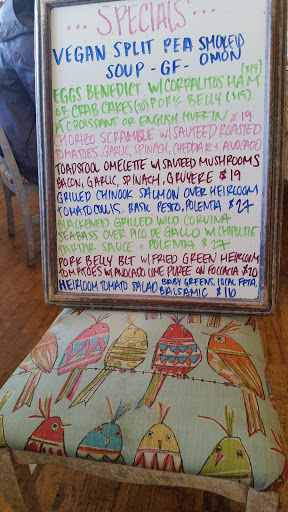 ... SPECIALS...
VEGAN SPLIT PEA SMOKEY
SOUP - GF - OMON
EGGS BENEDICT W/CORPALITOS HAM ($19)
OR CRAB CAKES(20) PORK BELLY ($19)
A CROISSANT OR ENGLISH MUFFIN $19
CHORIZO SCRAMBLE W/SAUTEED ROASTED
TOMATOES, GARLIC, SPINACH, CHEDDAR + AVOCADO
TOADSTOOL OMELETTE W/SAUTEED MUSHROOMS
BACON, GARLIC, SPINACH, GRUYERE $19
GRILLED CHINOOK SALMON OVER HEIRLOOM
TOMATO COULIS, BASIL PESTO, POLENTA $27
BLACKENED GRILLED WILD CORVINA
SEABASS OVER PICO DE GALLO W/CHIPOTLE
TARTAR SAUCE + POLENTA $27
PORK BELLY BLT W/FRIED GREEN HEIRLOOM
TOMATOES W/AVOCADO LIME PUREE ON FOCCACIA $20
HEIRLOOM TOMATO SALAD BABY GREENS, LOCAL FETA,
BALSAMIC $16